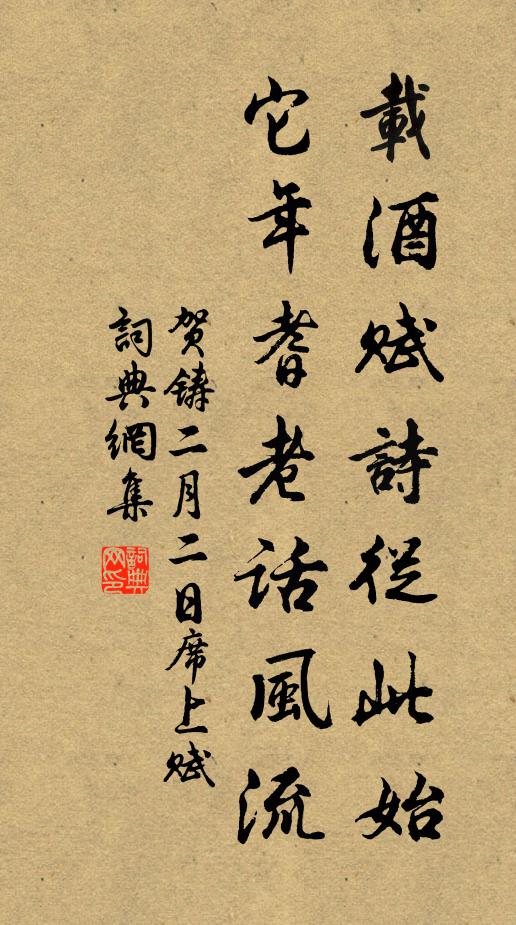 載酒賦詩從此始
它年耆老話風流
贺鑄二月二日席上赋
詞典網集
詞典网印